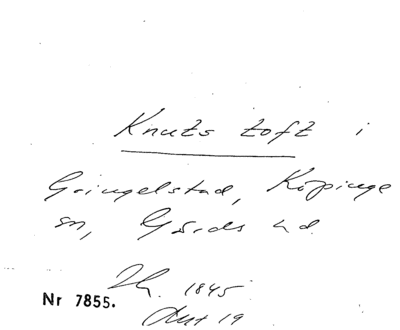 Knuts toft i
Gringelstad, Köpinge
sn, Gärds hd.
1845
Nr 7855.
19